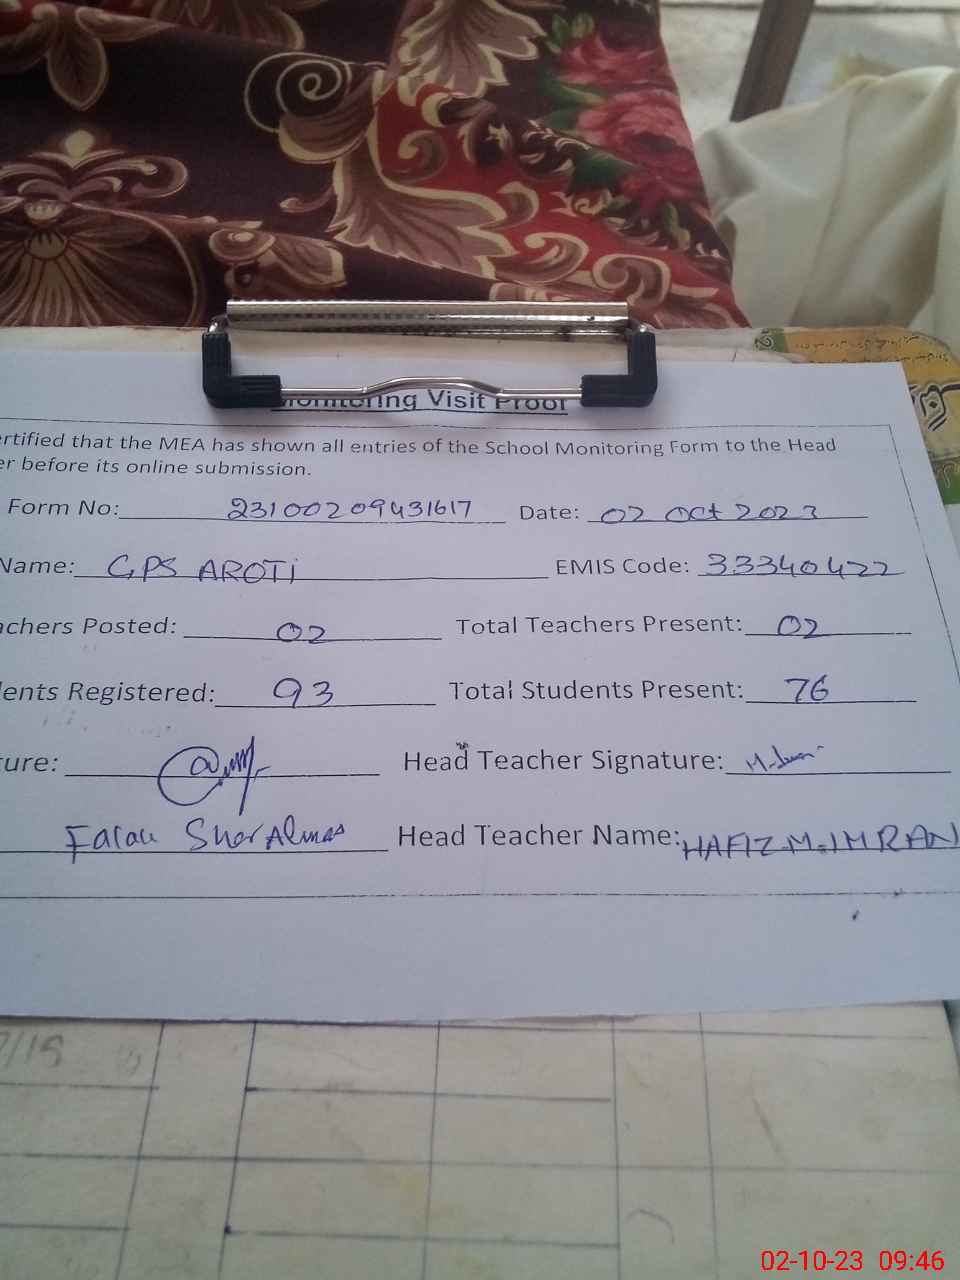 Monitoring Visit Proof
ertified that the MEA has shown all entries of the School Monitoring Form to the Head
er before its online submission.
Form No: 23100209431617 Date: 02 Oct 2023
Name: GPS AROTi EMIS Code: 33340422
achers Posted: 02 Total Teachers Present: 02
dents Registered: 93 Total Students Present: 76
ture: Head Teacher Signature:
Sher Almas Head Teacher Name: HAFIZ.M.IMRAN
/15
02-10-23 09:46